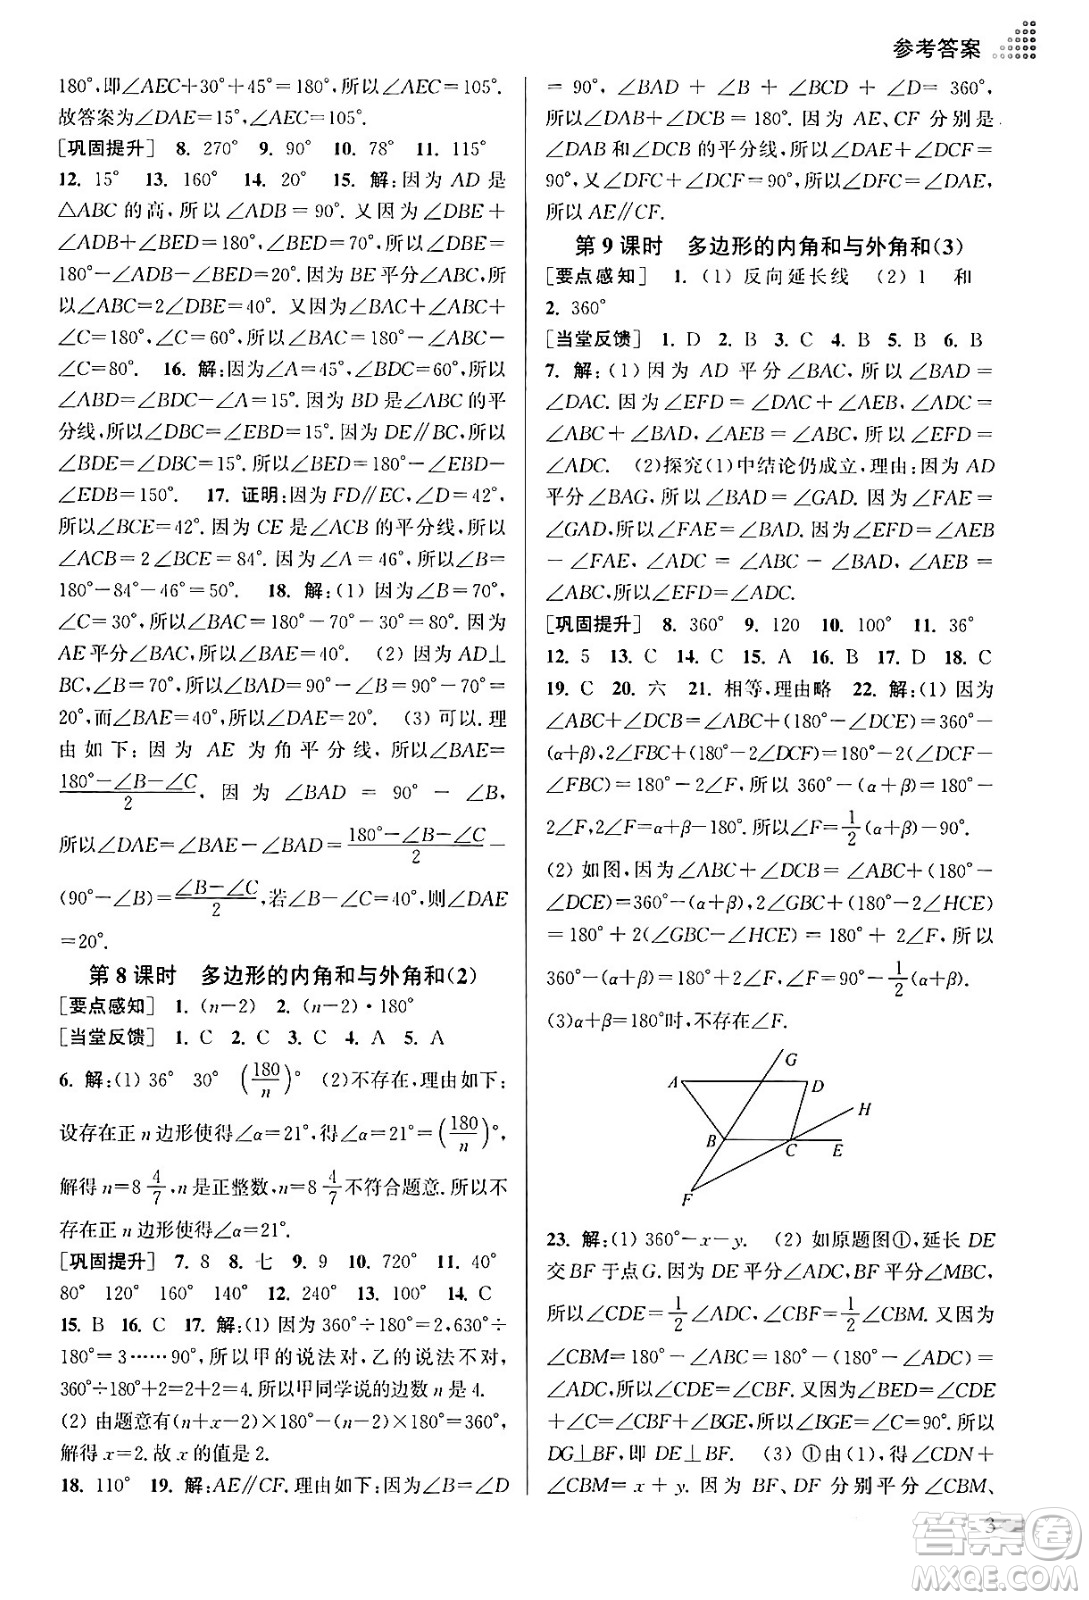 参考答案
180°,即∠AEC+30°+45°=180°,所以∠AEC=105°.
故答案为∠DAE=15°,∠AEC=105°.
[巩固提升] 8. 270° 9. 90° 10. 78° 11. 115°
12. 15° 13. 160° 14. 20° 15. 解:因为 AD 是
△ABC 的高,所以∠ADB=90°. 又因为∠DBE+
∠ADB+∠BED=180°,∠BED=70°,所以∠DBE=
180°−∠ADB−∠BED=20°. 因为 BE 平分∠ABC,所
以∠ABC=2∠DBE=40°. 又因为∠BAC+∠ABC+
∠C=180°,∠C=60°,所以∠BAC=180°−∠ABC−
∠C=80°. 16. 解:因为∠A=45°,∠BDC=60°,所以
∠ABD=∠BDC−∠A=15°. 因为 BD 是∠ABC 的平
分线,所以∠DBC=∠EBD=15°. 因为 DE∥BC,所以
∠BDE=∠DBC=15°,所以∠BED=180°−∠EBD−
∠EDB=150°. 17. 证明:因为 FD∥EC,∠D=42°,
所以∠BCE=42°. 因为 CE 是∠ACB 的平分线,所以
∠ACB=2∠BCE=84°. 因为∠A=46°,所以∠B=
180°−84°−46°=50°. 18. 解:(1) 因为∠B=70°,
∠C=30°,所以∠BAC=180°−70°−30°=80°. 因为
AE 平分∠BAC,所以∠BAE=40°. (2) 因为 AD⊥
BC,∠B=70°,所以∠BAD=90°−∠B=90°−70°=
20°,而∠BAE=40°,所以∠DAE=20°. (3) 可以. 理
由如下:因为 AE 为角平分线,所以∠BAE=
(180°−∠B−∠C)/2, 因为 ∠BAD = 90° − ∠B,
所以∠DAE=∠BAE−∠BAD=(180°−∠B−∠C)/2−
(90°−∠B)=(∠B−∠C)/2,若∠B−∠C=40°,则∠DAE
=20°.
第 8 课时 多边形的内角和与外角和(2)
[要点感知] 1. (n−2) 2. (n−2)·180°
[当堂反馈] 1. C 2. C 3. C 4. A 5. A
6. 解:(1) 36° 30° (180/n)° (2)不存在,理由如下:
设存在正 n 边形使得∠α=21°,得∠α=21°=(180/n)°,
解得 n=8 4/7,n 是正整数,n=8 4/7不符合题意. 所以不
存在正 n 边形使得∠α=21°.
[巩固提升] 7. 8 8. 七 9. 9 10. 720° 11. 40°
80° 120° 160° 140° 12. 240° 13. 100° 14. C
15. B 16. C 17. 解:(1) 因为360°÷180°=2,630°÷
180°=3……90°,所以甲的说法对,乙的说法不对,
360°÷180°+2=2+2=4. 所以甲同学说的边数 n 是 4.
(2) 由题意有(n+x−2)×180°−(n−2)×180°=360°,
解得 x=2. 故 x 的值是 2.
18. 110° 19. 解:AE∥CF. 理由如下:因为∠B=∠D
= 90°, ∠BAD + ∠B + ∠BCD + ∠D = 360°,
所以∠DAB+∠DCB=180°. 因为 AE、CF 分别是
∠DAB 和∠DCB 的平分线,所以∠DAE+∠DCF=
90°,又∠DFC+∠DCF=90°,所以∠DFC=∠DAE,
所以 AE∥CF.
第 9 课时 多边形的内角和与外角和(3)
[要点感知] 1. (1) 反向延长线 (2) 1 和
2. 360°
[当堂反馈] 1. D 2. B 3. C 4. C 5. B 6. B
7. 解:(1) 因为 AD 平分∠BAC,所以∠BAD=
∠DAC. 因为∠EFD=∠DAC+∠AFE,∠ADC=
∠ABC+∠BAD,∠AEB=∠ABC,所以∠EFD=
∠ADC. (2)探究(1)中结论仍成立,理由:因为 AD
平分∠BAG,所以∠BAD=∠GAD. 因为∠FAE=
∠GAD,所以∠FAE=∠BAD. 因为∠EFD=∠AEB
−∠FAE,∠ADC=∠ABC−∠BAD,∠AEB=
∠ABC,所以∠EFD=∠ADC.
[巩固提升] 8. 360° 9. 120 10. 100° 11. 36°
12. 5 13. C 14. C 15. A 16. B 17. D 18. C
19. C 20. 六 21. 相等,理由略 22. 解:(1) 因为
∠ABC+∠DCB=∠ABC+(180°−∠DCE)=360°−
(α+β),2∠FBC+(180°−2∠DCF)=180°−2(∠DCF−
∠FBC)=180°−2∠F. 所以360°−(α+β)=180°−
2∠F,2∠F=α+β−180°. 所以∠F=1/2(α+β)−90°.
(2) 如图,因为∠ABC+∠DCB=∠ABC+(180°−
∠DCE)=360°−(α+β),2∠GBC+(180°−2∠HCE)
=180°+2(∠GBC−∠HCE)=180°+2∠F,所以
360°−(α+β)=180°+2∠F,∠F=90°−1/2(α+β).
(3)α+β=180°时,不存在∠F.
G
A D
H
B C E
F
23. 解:(1) 360°−x−y. (2) 如原题图①,延长 DE
交 BF 于点 G. 因为 DE 平分∠ADC,BF 平分∠MBC,
所以∠CDE=1/2∠ADC,∠CBF=1/2∠CBM. 又因为
∠CBM=180°−∠ABC=180°−(180°−∠ADC)=
∠ADC,所以∠CDE=∠CBF. 又因为∠BED=∠CDE
+∠C=∠CBF+∠BGE,所以∠BGE=∠C=90°. 所以
DG⊥BF,即 DE⊥BF. (3) ①由(1),得∠CDN+
∠CBM=x+y. 因为 BF、DF 分别平分∠CBM、
3
答案圈
MXQE.COM